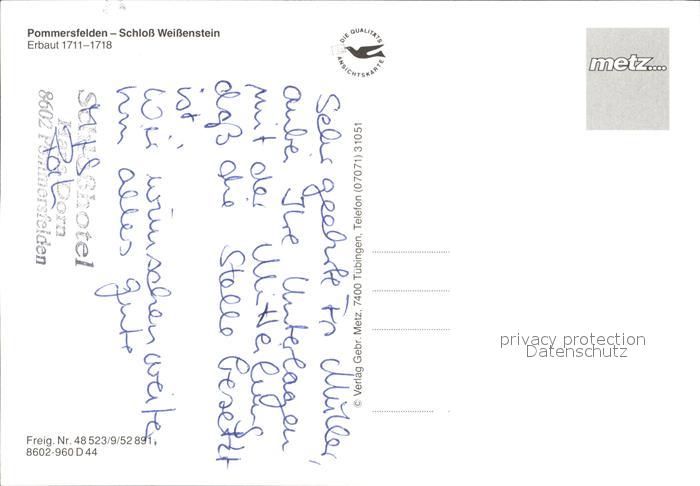 Pommersfelden – Schloß Weißenstein
Erbaut 1711–1718
DIE QUALITÄTS
ANSICHTSKARTE
metz....
Sehr geehrte Fr Müller,
anbei Ihre Unterlagen
mit der Mitteilung
daß die Stelle besetzt
ist.
Wir wünschen weiter
hin alles Gute
Schloßhotel
Dorn
8602 Pommersfelden
© Verlag Gebr. Metz, 7400 Tübingen, Telefon (07071) 31051
privacy protection
Datenschutz
Freig. Nr. 48 523/9/52 891,
8602-960 D 44